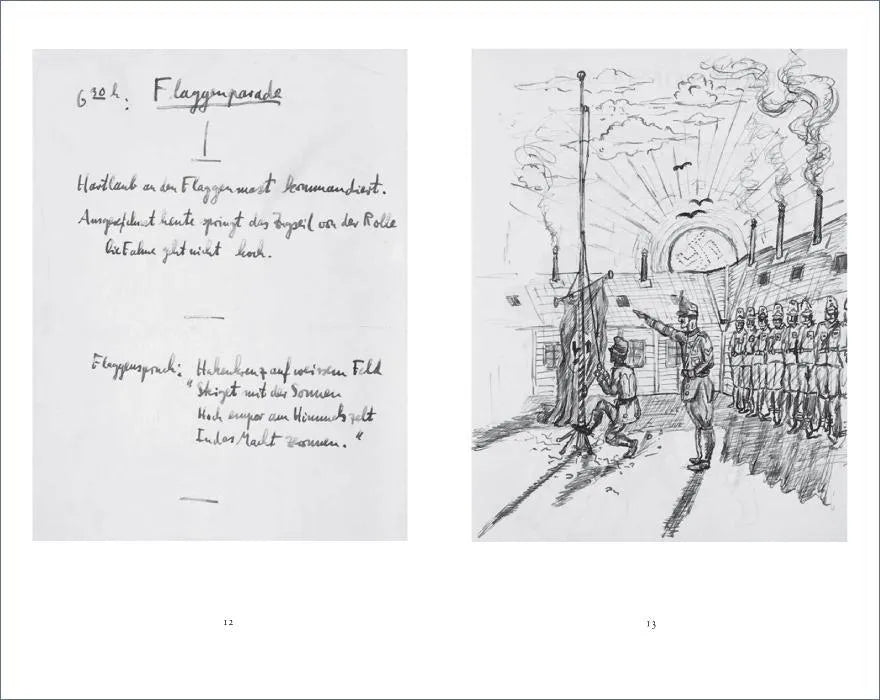 6 30 h: Flaggenparade
I
Hartlaub an den Flaggenmast kommandiert.
Ausgerechnet heute springt das Zugseil von der Rolle
Die Fahne geht nicht hoch.
Flaggenspruch: Hakenkreuz auf weissem Feld
"Steiget mit der Sonnen
Hoch empor am Himmelszelt
In das Macht
12
13